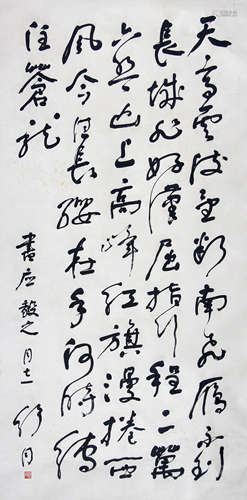 天高雲淡望斷南飛雁不到
長城非好漢屈指行程二萬
六盤山上高峰紅旗漫捲西
風今日長纓在手何時縛
住蒼龍
書應毅之
舒同